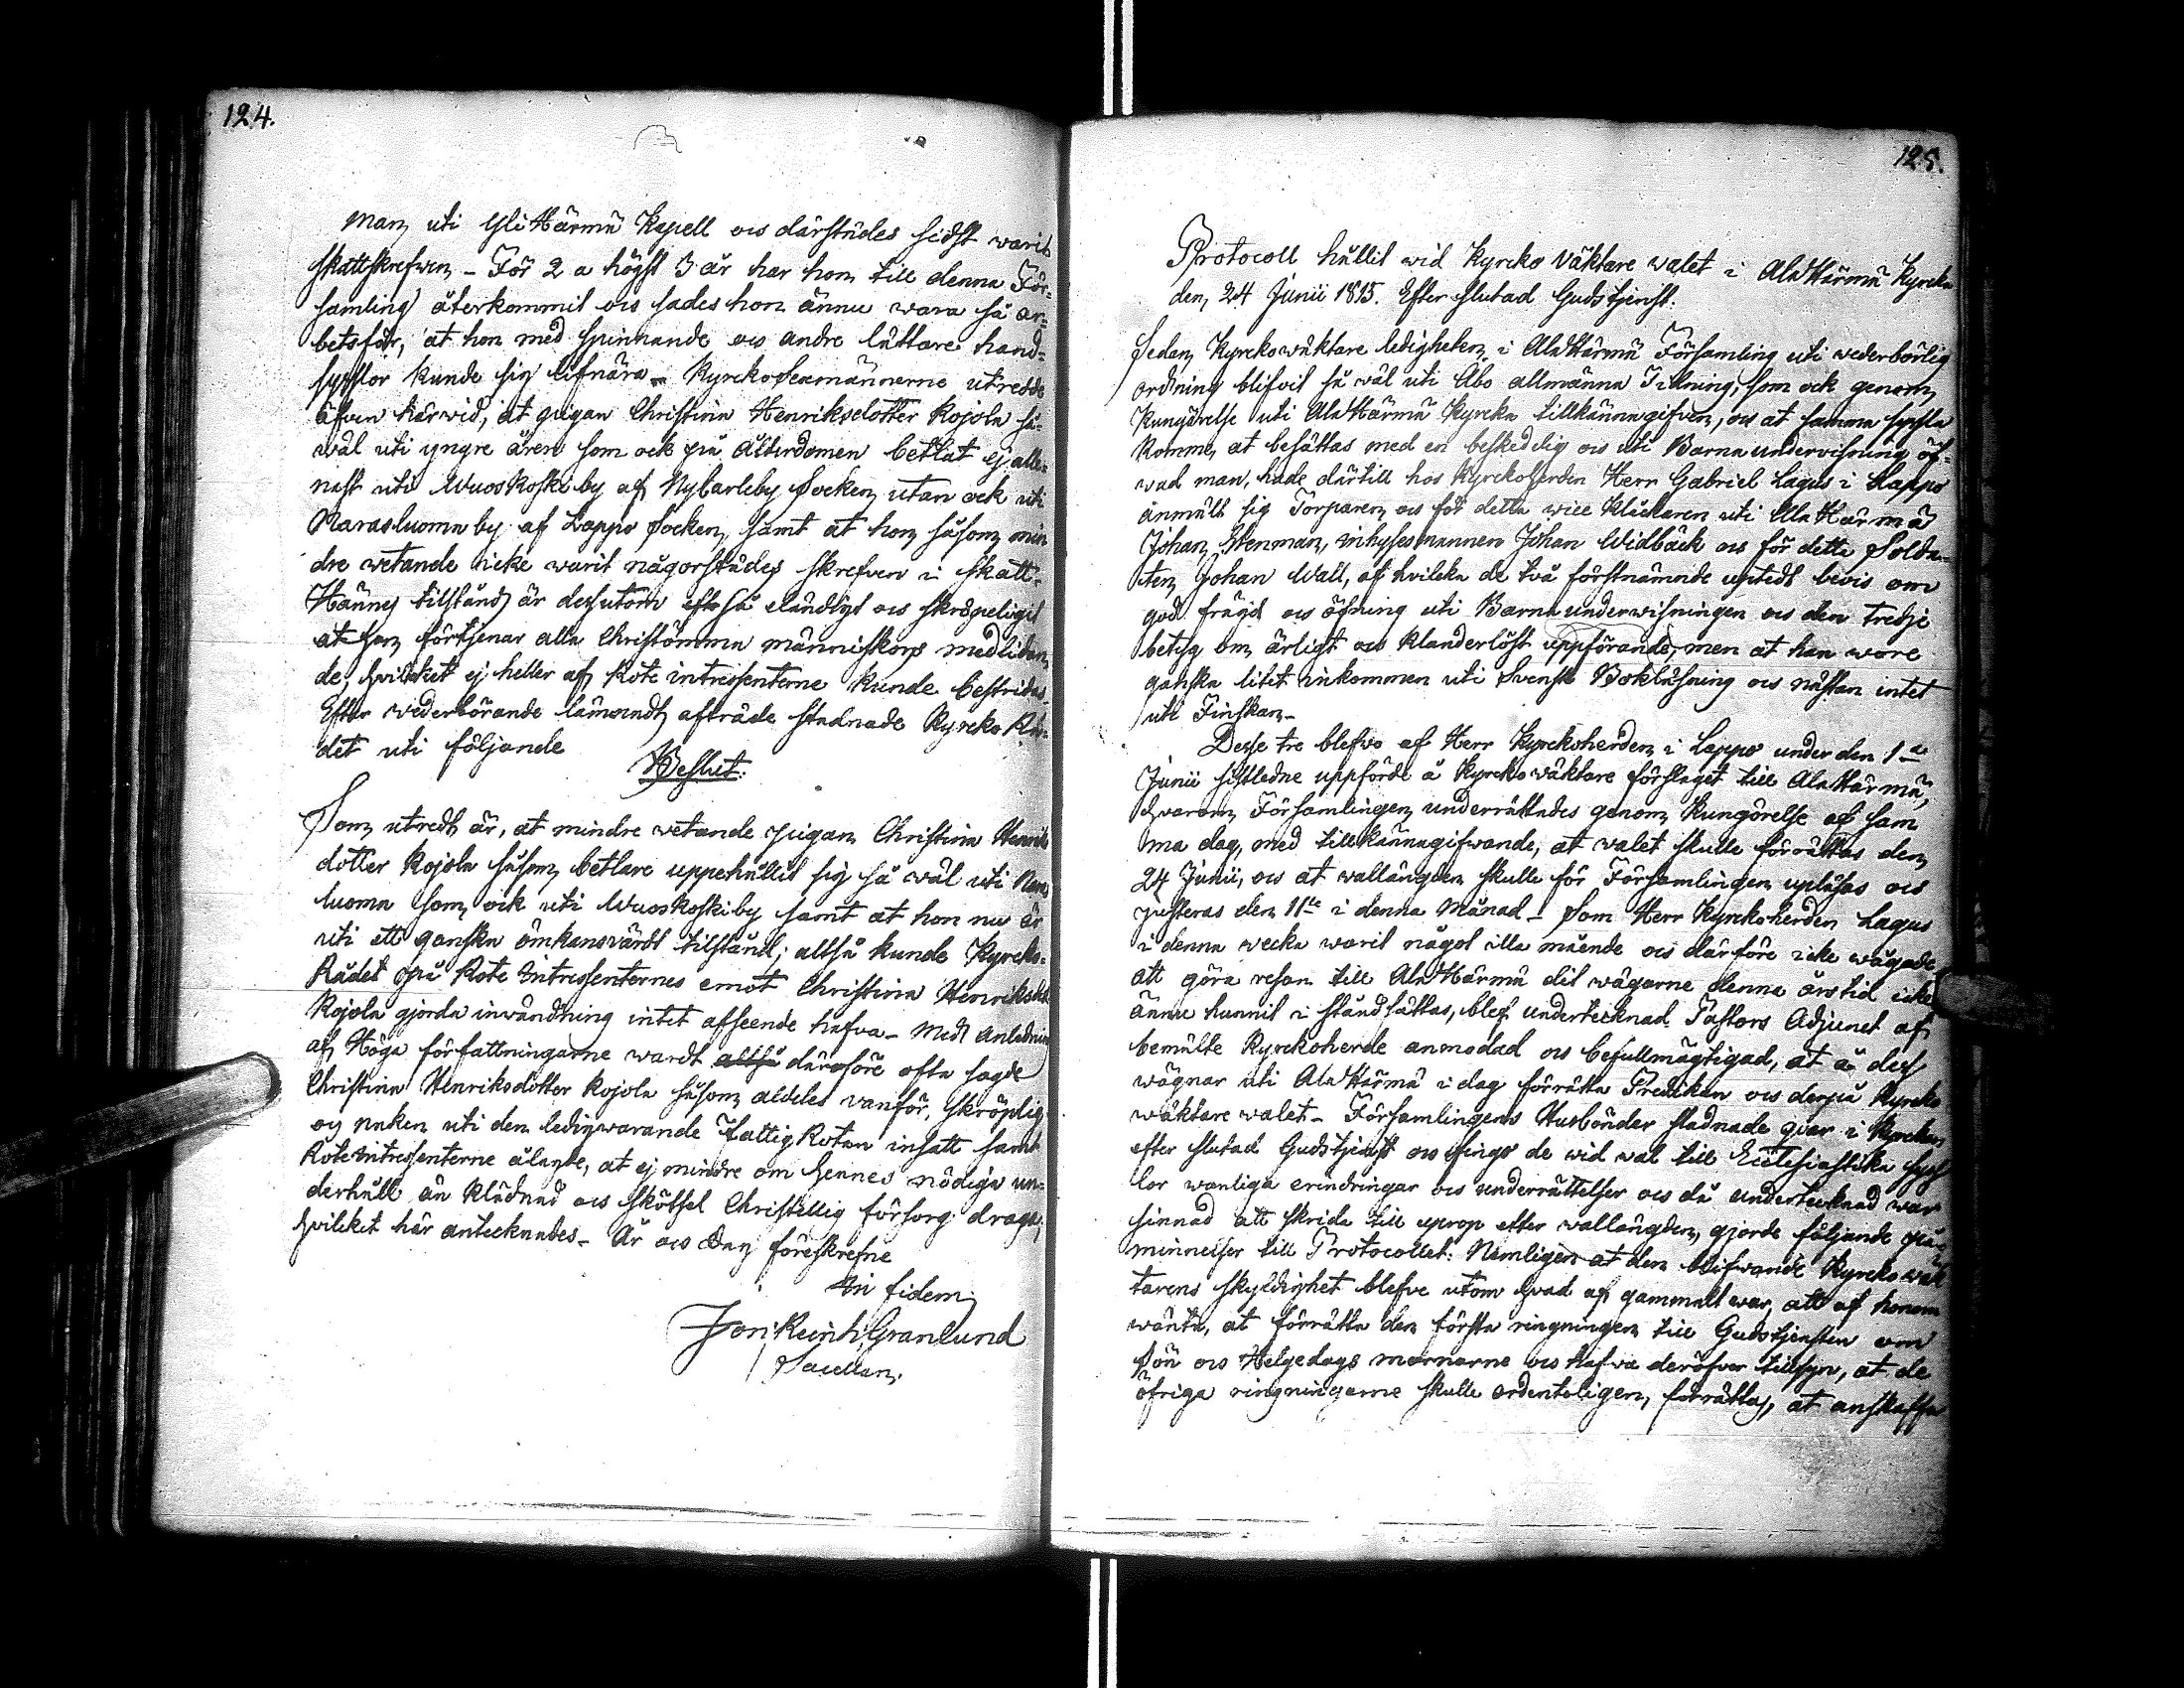 124.
man uti Yli Härmä Kapell och därstädes sidst warit
skattskrefwen – För 2 a högst 3 år har hon till denna För-
samling återkommit och sades hon ännu wara så ar-
betsför, at hon med spinnande och andre lättare hand-
sysslor kunde sig lifnära – Kyrko Sexmännerne utredde
äfven härwid, at pigan Christina Henriksdotter Kojola så-
wäl uti yngre åren som ock på ålderdomen betlat ej alle-
nast uti Wuoskoski by af Nykarleby Socken utan ock uti
Navasluoma by af Lappo Socken, samt at hon såsom min
dre wetande icke warit någorstädes skrefven i skatt-
Hännes tillstånd är dessutom så eländigt och skröpeligit
at hon förtjenar alla Christömma människors medlidan
de, hvilcket ej heller af Rote intressenterne kunde bestridas.
Efter wederbörande lämnandt afträde stadnade Kyrko Rå-
det uti följande
Beslut:
Som utredt är, at mindre wetande pigan Christina Henriks
dotter Kojola såsom betlare uppehållit sig så wäl uti Nava
luoma som ock uti Wuoskoski by samt at hon nu är
uti ett ganska ömkansvärdt tillstånd; altså kunde Kyrko-
Rådet på Rote Intressenternes emot Christina Henriksdr
Kojola gjorda inwändning intet afseende hafva – Med Anledning
af Höga författningarne wardt altså därföre ofta sagde
Christina Henriksdotter Kojola såsom aldeles vanför, skröplig
og naken uti den ledigwarande Fattig Rotan insatt samt
Rote Intressenterne ålagde, at ej mindre om hennes nödiga un-
derhåll än klädnad och skötsel Christellig försorg draga;
hvilcket här antecknades – År och Dag föreskrefne
In fidem
Jon: Reinh: Granlund
Sacellan.
125.
Protocoll hållit wid Kyrko Väktare walet i Ala Härmä Kyrcka
den 24 Junii 1815. Efter slutad Gudstjenst.
Sedan Kyrckowäktare ledigheten i Ala Härmä Församling uti wederbörlig
ordning blifvit så wäl uti Åbo allmänna Tidning, som ock genom
Kungörelse uti Ala Härmä Kyrcka tillkännagifven, och at samma syssla
komme at besättas med en beskedelig och uti Barnaundervisning öf-
wad man, hade därtill hos Kyrckoherden Herr Gabriel Lagus i Lappo
anmält sig Torparen och för detta vice Klåckaren uti Ala Härmä
Johan Stenman, inhysesmannen Johan Widbäck och för detta Solda-
ten Johan Wall, af hvilcka de två förstnämnde uptedt bevis om
god frägd och öfning uti Barna underwisningen och den tredje
betyg om ärligt och klanderlöst uppförande, men at han wore
ganska litet inkommen uti Svensk Bokläsning och nästan intet
uti Finskan –
Desse tre blefvo af Herr Kyrckoherden i Lappo under den 1a
Junii sistledne uppförde å Kyrckowäktare förslaget till Ala Härmä,
hvarom Församlingen underrättades genom Kungörelse af sam
ma dag, med tillkännagifwande, at walet skulle förrättas den
24 Junii, och at wallängden skulle för Församlingen upläsas och
justeras den 11te i denna Månad – Som Herr Kyrckoherden Lagus
i denna wecka warit något illa mående och därföre icke wågade
att göra resan till Ala Härmä dit wägarne denna årstid icke
ännu hunnit i stånd sättas, blef undertecknad Pastors Adjunct af
bemälte Kyrckoherde anmodad och befullmägtigad, at å dess
wägnar uti Ala Härmä i dag förrätta Predikan och derpå Kyrcko
wäktare walet – Församlingens Husbönder stadnade qvar i Kyrckan
efter slutad Gudstjenst och fingo de wid wal till Ecclesiastika syss
lor wanliga erindringar och underrättelser och då undertecknad war
sinnad att skrida till uprop efter wallängden, gjorde följande på-
minnelser till Protocollet: Nemligen at den blifwande Kyrckowäk
tarens skyldighet blefve utom hvad af gammalt war, att af honom
wänta, at förrätta den första ringningen till Gudstjensten om
Sön och Helgedags mornarne och hafva deröfver tillsyn, at de
öfriga ringningarne skulle ordenteligen förrättas, at anskaffa